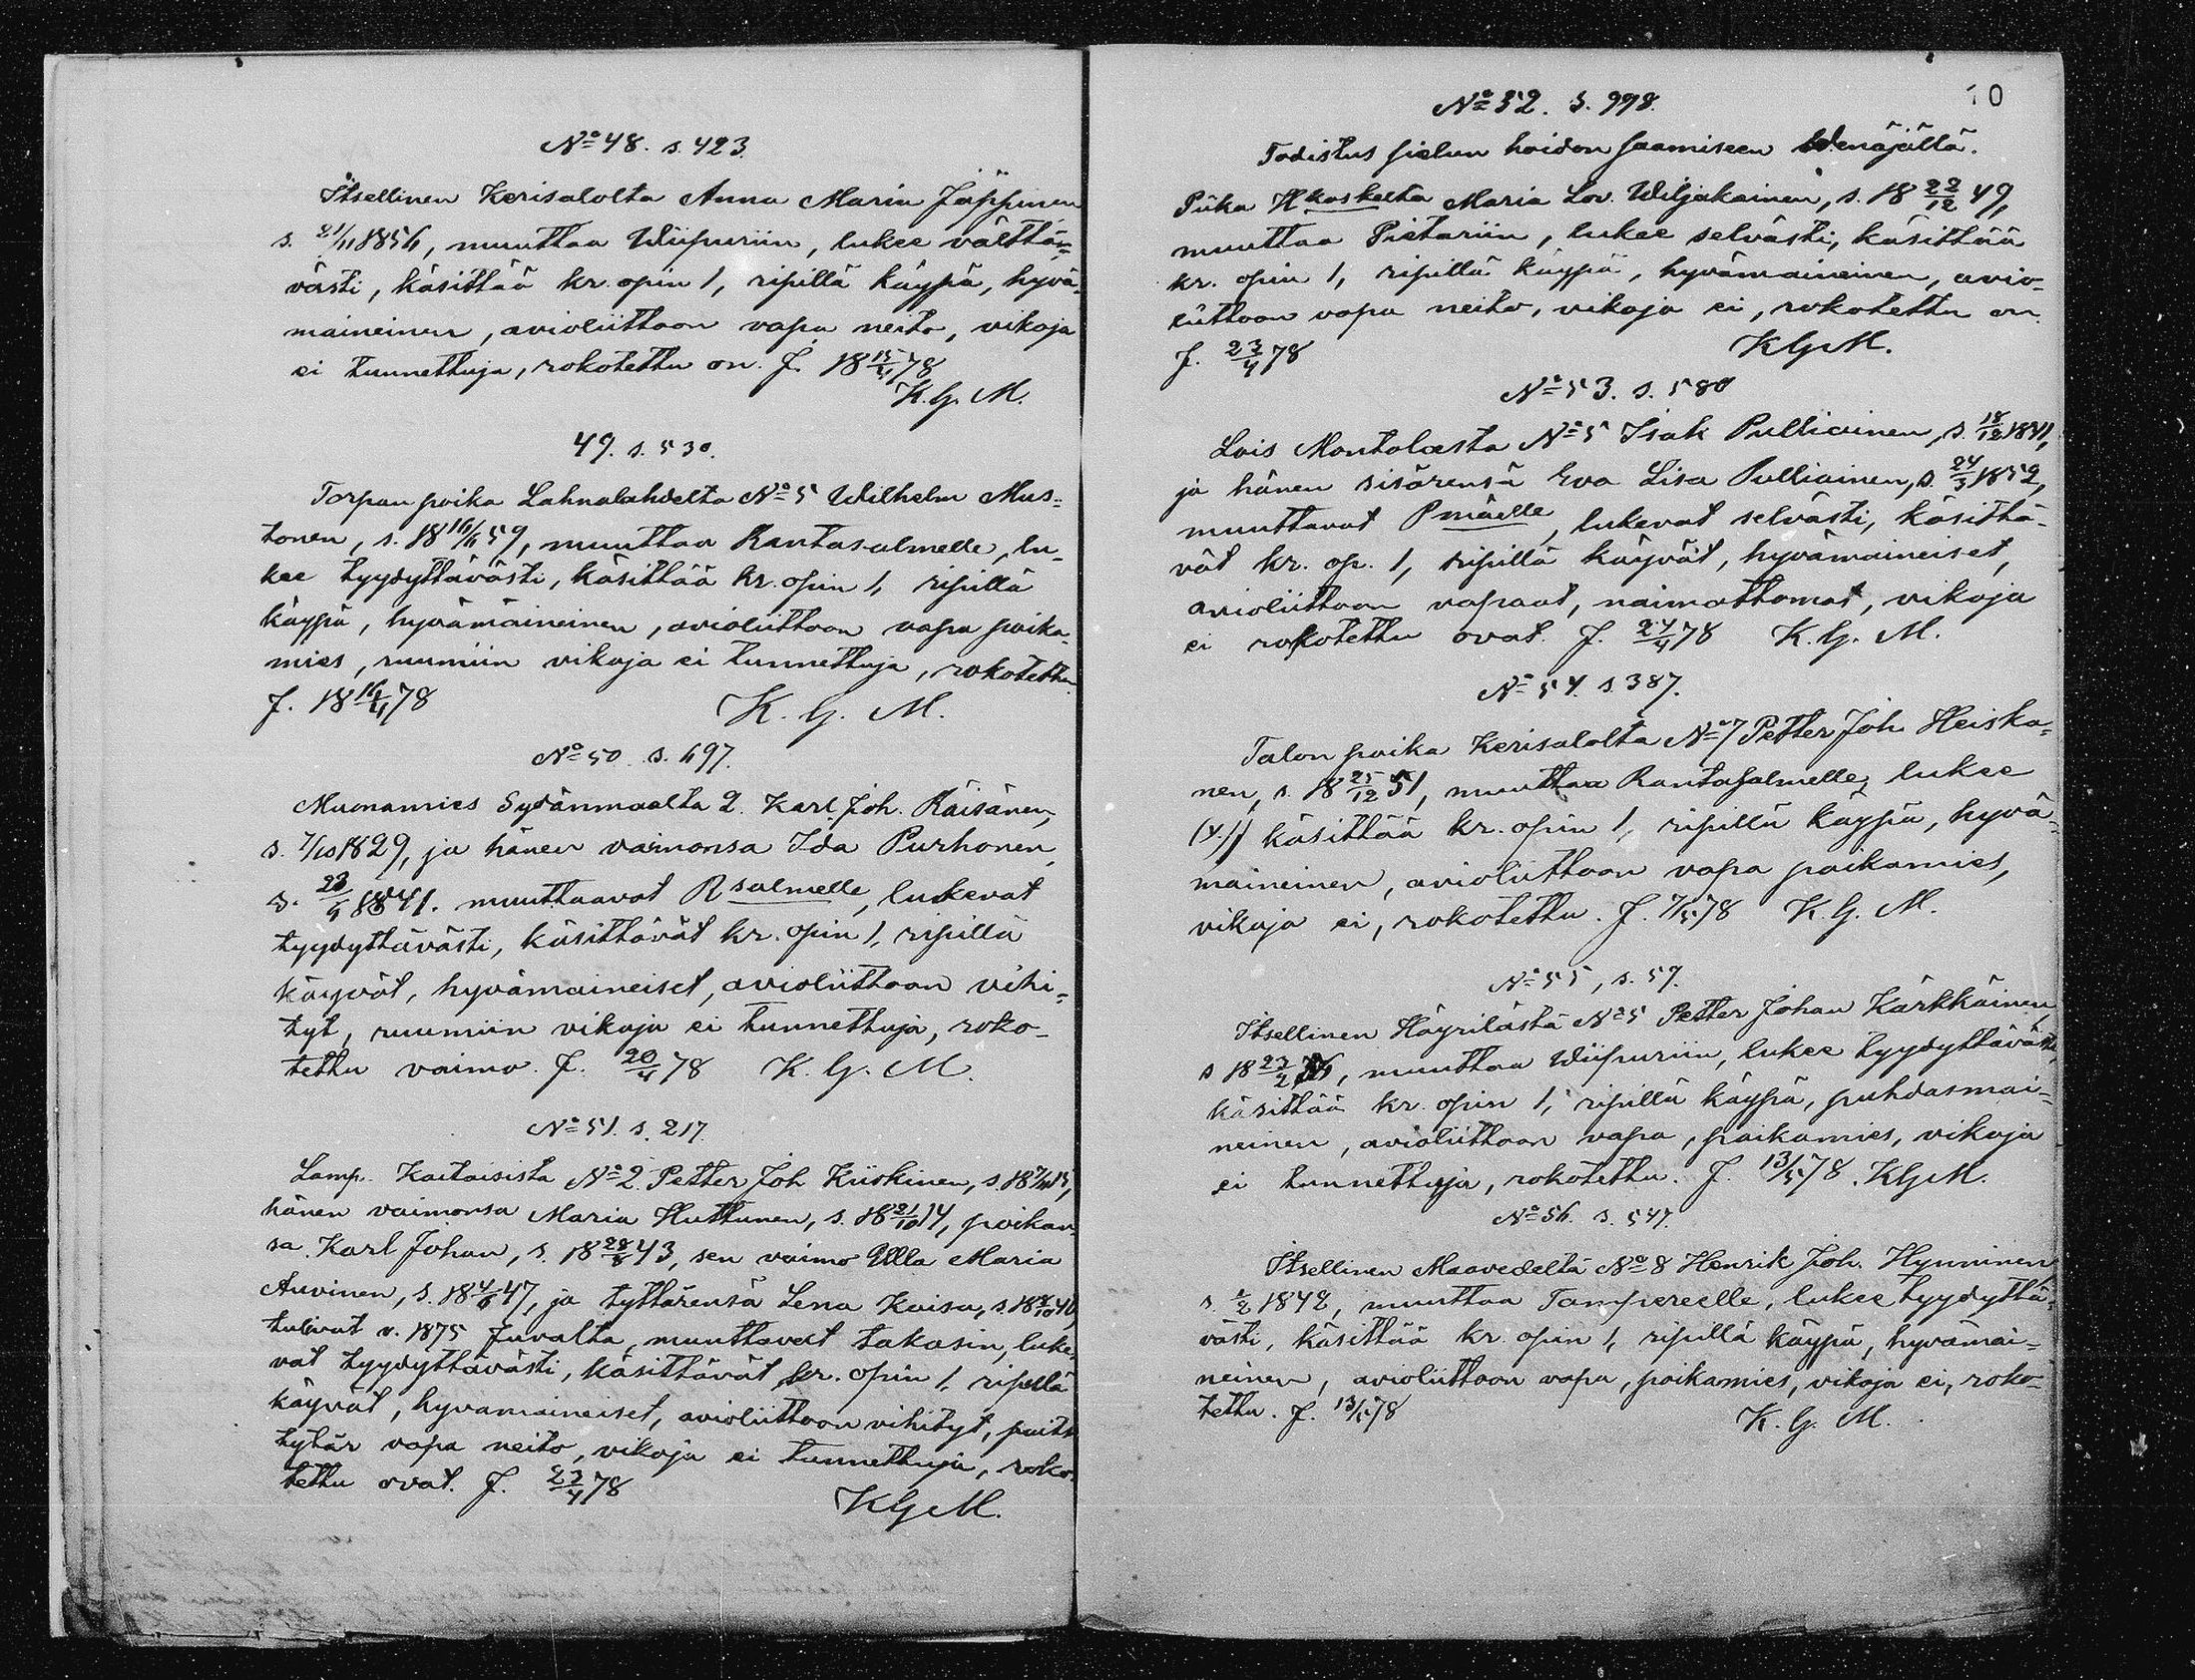 No 48. s. 423.
Itsellinen Kerisalolta Anna Maria Jäppinen
s. 21/11 1856, muuttaa Wiipuriin, lukee välttä=
västi, käsittää kr. opin 1, ripillä käypä, hyvä=
maineinen, avioliittoon vapa neito, vikoja
ei tunnettuja, rokotettu on. J. 18 15/4 78
K. G. M.
49. s. 530.
Torpan poika Lahnalahdelta No 5 Wilhelm Mus=
tonen, s. 18 16/11 59, muuttaa Rantasalmelle, lu=
kee tyydyttävästi, käsittää kr. opin 1, ripillä
käypä, hyvämaineinen, avioliittoon vapa poika=
mies, ruumiin vikoja ei tunnettuja, rokotettu
J. 18 16/4 78 K. G. M.
No 50 s. 697.
Muonamies Sydänmaalta 2. Karl Joh. Räisänen,
s. 7/10 1829, ja hänen vaimonsa Ida Purhonen,
s. 23/9 1841. muuttaavat Rsalmelle, lukevat
tyydyttävästi, käsittävät kr. opin 1, ripillä
käyvät, hyvämaineiset, avioliittoon vihi=
tyt, ruumiin vikoja ei tunnettuja, roko=
tettu vaimo. J. 20/4 78 K. G. M.
No 51. s. 217.
Lamp. Kaitaisista No 2 Petter Joh Kiiskinen, s.
hänen vaimonsa Maria Huttunen, s. 18 21/10 14, poikan
sa Karl Johan, s. 18 28/8 43, sen vaimo Ulla Maria
Auvinen, s. 18 4/6 47, ja tyttärensä Lena Kaisa,
tulivat v. 1875 Juvalta, muuttavat takasin, luke=
vat tyydyttävästi, käsittävät kr. opin 1, ripillä
käyvät, hyvamaineiset, avioliittoon vihityt, paits
tytär vapa neito, vikoja ei tunnettuja, roko=
tettu ovat. J. 23/4 78
KGM.
10
No 52. s. 998.
Todistus sielun hoidon saamiseen Wenäjällä.
Piika Hkoskelta Maria Lov. Wiljakainen, s. 18 22/12 49,
muuttaa Pietariin, lukee selvästi, käsittää
kr. opin 1, ripillä käypä, hyvämaineinen, avio=
liittoon vapa neito, vikoja ei, rokotettu on.
J. 23/4 78 KGM.
No 53. s. 580
Lois Montolasta No 5 Isak Pulliainen, s. 18/12 1841,
ja hänen sisärensä Eva Lisa Pulliainen, s. 24/3 1852,
muuttavat Pmäelle, lukevat selvästi, käsittä=
vät kr. op. 1, ripillä käyvät, hyvämaineiset,
avioliittoon vapaat, naimattomat, vikoja
ei rokotettu ovat. J. 24/4 78 K. G. M.
No 54. s. 387.
Talon poika Kerisalolta No 7 Petter Joh. Heiska=
nen, s. 18 25/12 51, muuttaa Rantasalmelle, lukee
käsittää kr. opin 1, ripillä käypä, hyvä=
maineinen, avioliittoon vapa poikamies,
vikoja ei, rokotettu. J. 7/5 78 K. G. M.
No 55, s. 59.
Itsellinen Häyrilästä No 5 Petter Johan Kärkkäinen,
s 18 23/2, muuttaa Wiipuriin, lukee tyydyttävästi,
käsittää kr. opin 1, ripillä käypä, puhdasmai=
neinen, avioliittoon vapa, poikamies, vikoja
ei tunnettuja, rokotettu. J. 13/5 78. KGM.
No 56. s. 547.
Itsellinen Maavedeltä No 8 Henrik Joh. Hynninen,
s. 1/2 1842, muuttaa Tampereelle, lukee tyydyttä=
västi, käsittää kr. opin 1, ripillä käypä, hyvämai=
neinen, avioliittoon vapa, poikamies, vikoja ei, roko=
tettu. J. 13/5 78 K. G. M.